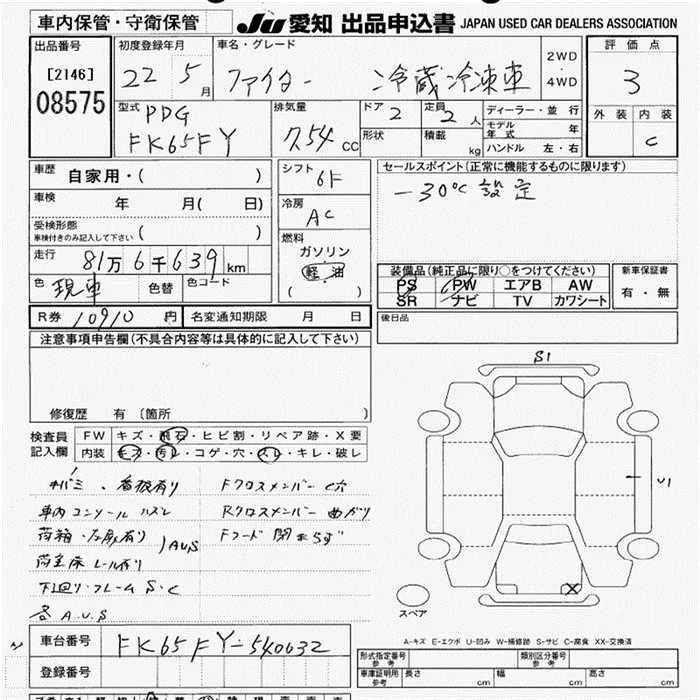 車内保管・守衛保管 JU 愛知 出品申込書 JAPAN USED CAR DEALERS ASSOCIATION
出品番号 初度登録年月 車名・グレード 2WD 4WD 評価点
[2146] 22 5月 ファイター 冷蔵冷凍車 3
08575
型式 PDG 排気量 ドア 2 定員 2人 ディーラー・並行 外装 内装
FK65FY 7.54 cc 形状 積載 kg モデル年式 年 C
ハンドル 左・右
車歴 自家用・( ) シフト 6F セールスポイント(正常に機能するものに限ります)
車検 年 月( 日) 冷房 AC -30℃設定
受検形態
車検付きのみ記入して下さい ( )
燃料
走行 81万6千639km ガソリン
軽・油
( )
装備品(純正品に限り○をつけてください) 新車保証書
色 現車 色替 色コード PS PW エアB AW 有・無
SR ナビ TV カワシート
R券 10910円 名変通知期限 月 日 後日品
注意事項申告欄(不具合内容等は具体的に記入して下さい)
S1
修復歴 有 (箇所 )
検査員 FW キズ・飛石・ヒビ割・リペア跡・X要
記入欄 内装 キズ・汚レ・コゲ・穴・スレ・キレ・破レ
看板有り Fクロスメンバー C穴 U1
車内コンソール ハズレ Rクロスメンバー 曲ガり
荷箱・左扉有り AUS Fフード 閉まらず
レール有り
下回り・フレーム S・C X
各 A.U.S
スペア
車台番号 FK65FY-540632
A-キズ E-エクボ U-凹み W-補修跡 S-サビ C-腐食 XX-交換済
登録番号
形式指定番号 参考 類別区分番号 参考
車庫証明用 参考 長さ cm 幅 cm 高さ cm